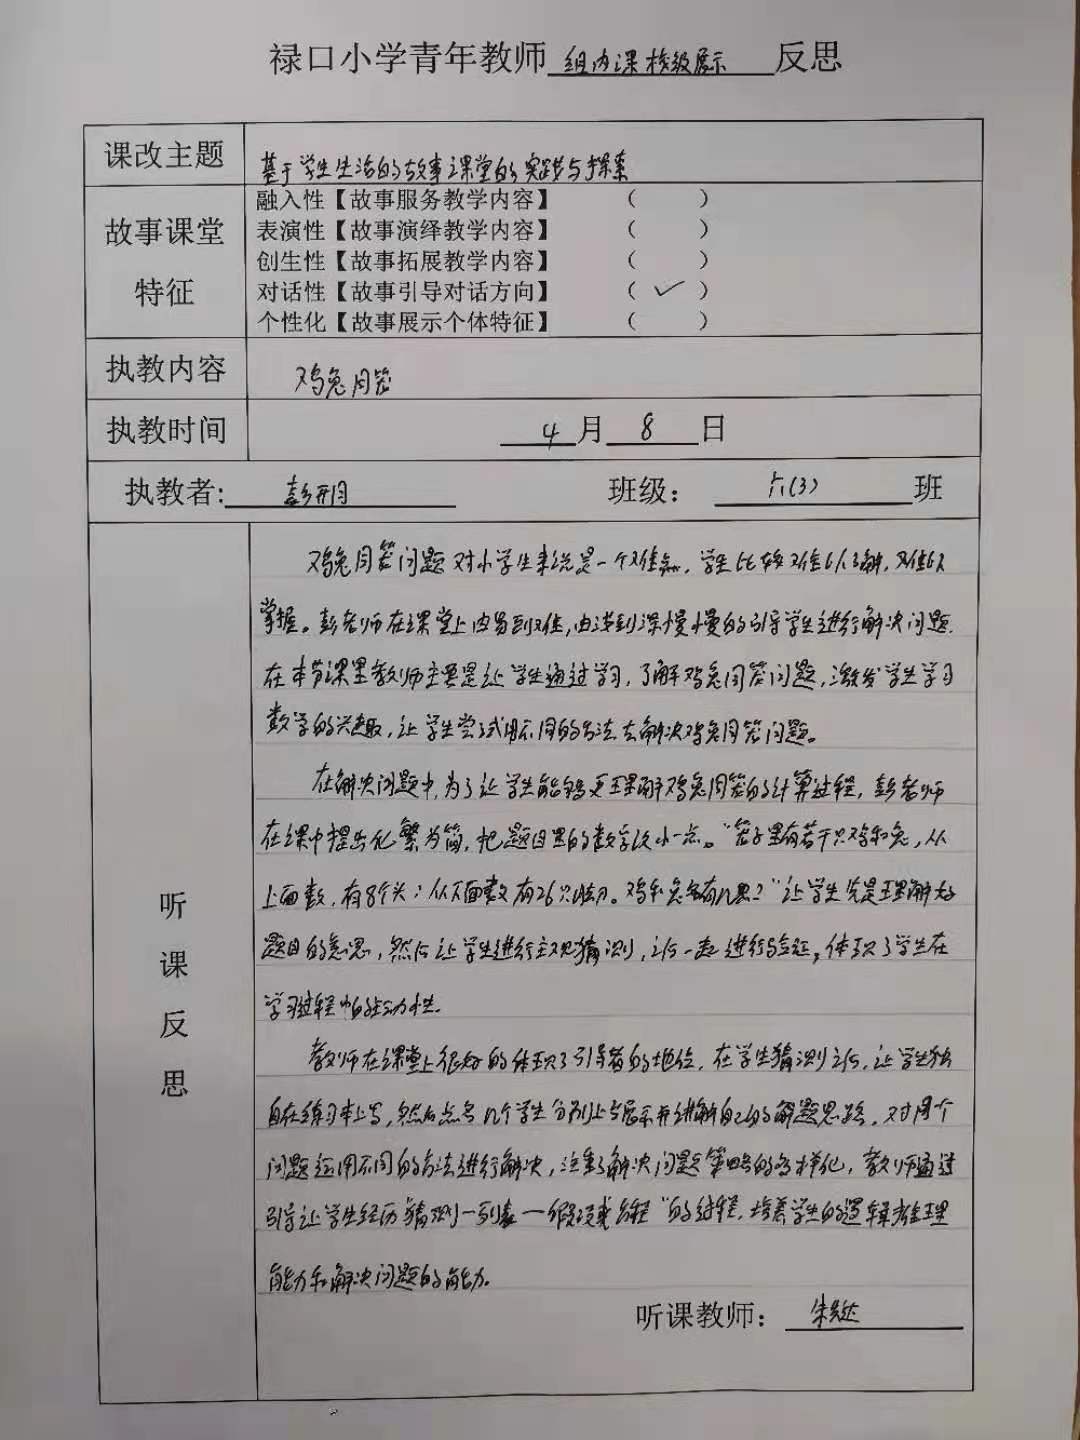 禄口小学青年教师 组内课校级展示 反思
课改主题 基于学生生活的故事课堂的实践与探索
故事课堂特征
融入性【故事服务教学内容】 （ ）
表演性【故事演绎教学内容】 （ ）
创生性【故事拓展教学内容】 （ ）
对话性【故事引导对话方向】 （ ✓ ）
个性化【故事展示个体特征】 （ ）
执教内容 鸡兔同笼
执教时间 4 月 8 日
执教者: 彭 班级： 六(3) 班
听课反思
鸡兔同笼问题对小学生来说是一个难点，学生比较难以了解，难以
掌握。彭老师在课堂上由易到难，由浅到深慢慢的引导学生进行解决问题.
在本节课里教师主要是让学生通过学习，了解鸡兔同笼问题，激发学生学习
数学的兴趣，让学生尝试用不同的方法去解决鸡兔同笼问题。
在解决问题中，为了让学生能够更理解鸡兔同笼的计算过程，彭老师
在课中提出化繁为简，把题目里的数字改小一点。“笼子里有若干只鸡和兔，从
上面数，有8个头；从下面数有26只脚。鸡和兔各有几只？”让学生先是理解好
题目的意思，然后让学生进行主观猜测，之后一起进行验证，体现了学生在
学习过程中的主动性.
教师在课堂上很好的体现了引导者的地位，在学生猜测之后，让学生独
自在练习本上写，然后点名几个学生分别上台展示并讲解自己的解题思路，对同个
问题运用不同的方法进行解决，注重了解决问题策略的多样化，教师通过
引导让学生经历猜测—列表—假设或方程“的过程，培养学生的逻辑推理
能力和解决问题的能力.
听课教师： 朱